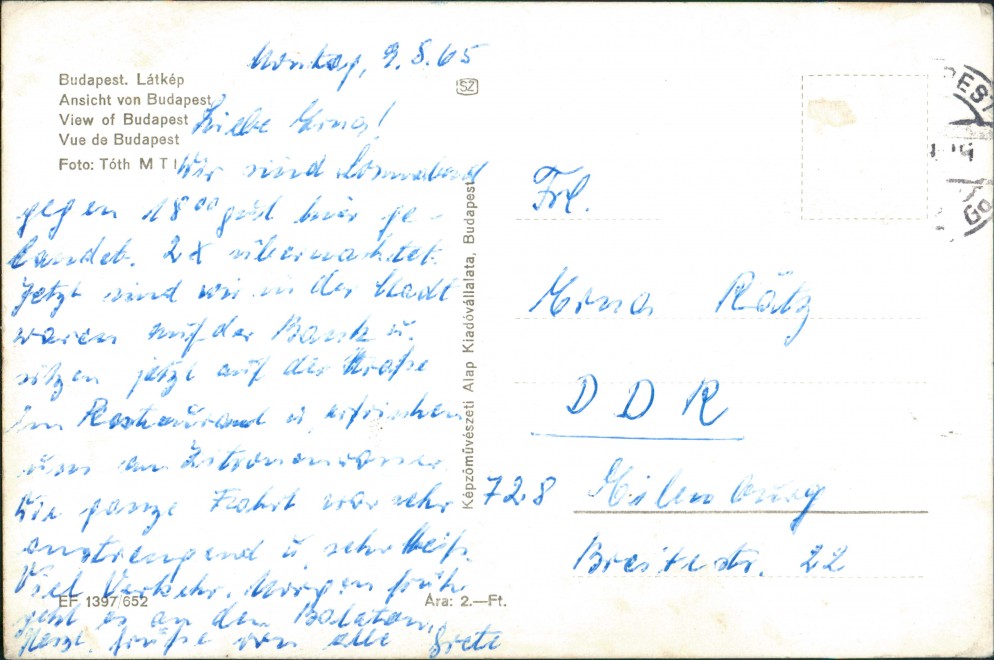 Budapest. Látkép
Ansicht von Budapest
View of Budapest
Vue de Budapest
Foto: Tóth MTI
Montag, 9.8.65
Liebe Erna!
Wir sind Sonnabend
gegen 18 00 gut hier ge-
landet. 2x übernachtet.
Jetzt sind wir in der Stadt
waren auf der Bank u.
sitzen jetzt auf der Straße
im Restaurand u. erfrischen
uns an Zitronenwasser.
Die ganze Fahrt war sehr
anstrengend u. sehr heiß.
Viel Verkehr. Morgen früh
geht es an den Balaton.
Herzl. Grüße von alle Grete
EF 1397/652
Ára: 2.—Ft.
SZ
Képzőművészeti Alap Kiadóvállalata, Budapest
Frl.
Erna Rätz
DDR
728 Eilenburg
Breitestr. 22